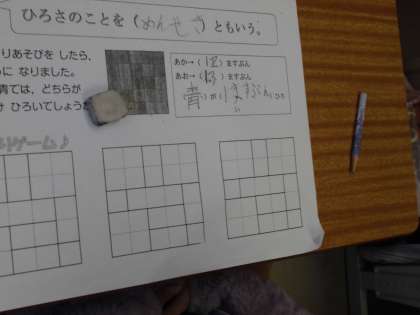 ひろさのことを(めんせき)ともいう。
りあそびを したら、
うに なりました。
青では、どちらが
け ひろいでしょうか
あか→( 12 )ますぶん
あお→( 13 )ますぶん
青が(1ますぶん)ひろ
い
ゲーム♪